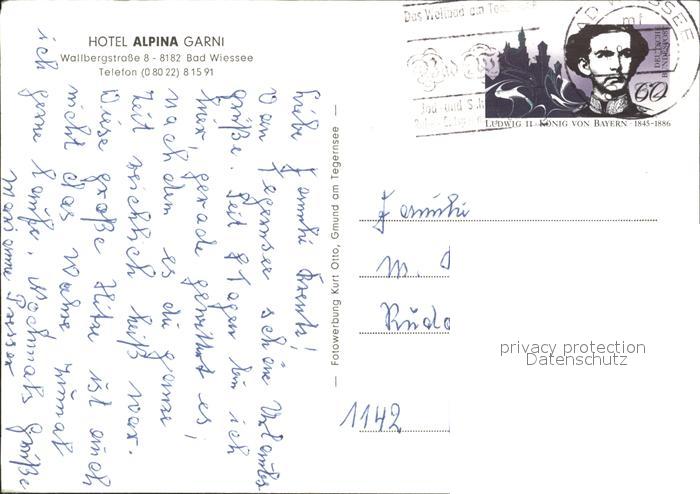 HOTEL ALPINA GARNI
Wallbergstraße 8 - 8182 Bad Wiessee
Telefon (0 80 22) 8 15 91
Liebe Familie
Vom Tegernsee schöne Urlaubs
grüße. Seit 8 Tagen bin ich
hier, gerade gewittert es,
nachdem es die ganze
Zeit reichlich heiß war.
Diese große Hitze ist auch
nicht das Wahre, zumal
ich gerne laufe. Nochmals Grüße
Marianne
— Fotowerbung Kurt Otto, Gmund am Tegernsee —
Das Weltbad am Tegernsee
Bad
BAD WIESSEE
mf
DEUTSCHE
BUNDESPOST
60
LUDWIG II · KÖNIG VON BAYERN · 1845-1886
Familie
M.
Rudo
1142
privacy protection
Datenschutz